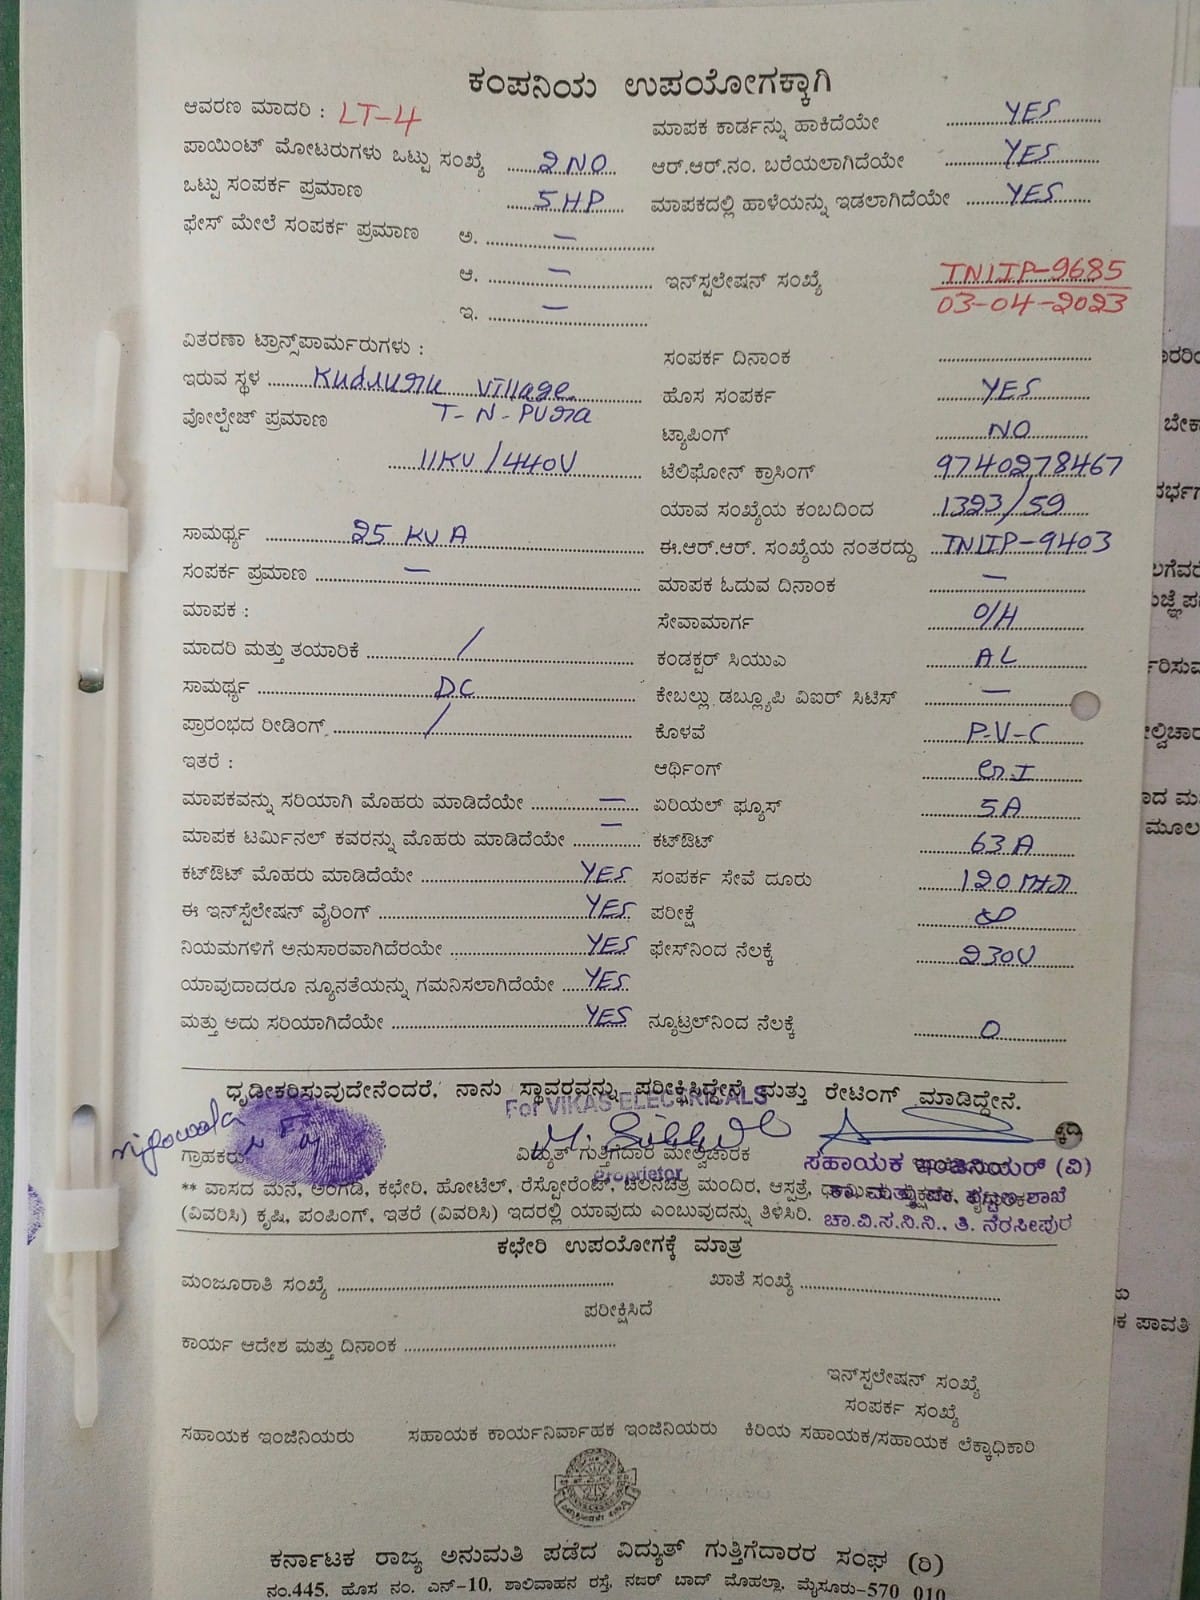 ಕಂಪನಿಯ ಉಪಯೋಗಕ್ಕಾಗಿ
ಆವರಣ ಮಾದರಿ : LT-4
ಮಾಪಕ ಕಾರ್ಡನ್ನು ಹಾಕಿದೆಯೇ YES
ಪಾಯಿಂಟ್ ಮೋಟರುಗಳು ಒಟ್ಟು ಸಂಖ್ಯೆ 2 NO
ಆರ್.ಆರ್.ನಂ. ಬರೆಯಲಾಗಿದೆಯೇ YES
ಒಟ್ಟು ಸಂಪರ್ಕ ಪ್ರಮಾಣ 5 HP
ಮಾಪಕದಲ್ಲಿ ಹಾಳೆಯನ್ನು ಇಡಲಾಗಿದೆಯೇ YES
ಫೇಸ್ ಮೇಲೆ ಸಂಪರ್ಕ ಪ್ರಮಾಣ ಅ. —
ಆ. —
ಇನ್‌ಸ್ಪಲೇಷನ್ ಸಂಖ್ಯೆ TNLIP-9685
03-04-2023
ಇ. —
ವಿತರಣಾ ಟ್ರಾನ್ಸ್‌ಪಾರ್ಮರುಗಳು :
ಸಂಪರ್ಕ ದಿನಾಂಕ
ಇರುವ ಸ್ಥಳ Kuduuru Village
ಹೊಸ ಸಂಪರ್ಕ YES
ವೋಲ್ಟೇಜ್ ಪ್ರಮಾಣ T-N-PURa
ಟ್ಯಾಪಿಂಗ್ NO
11KV/440V
ಟೆಲಿಫೋನ್ ಕ್ರಾಸಿಂಗ್ 9740278467
ಯಾವ ಸಂಖ್ಯೆಯ ಕಂಬದಿಂದ 1323/59
ಸಾಮರ್ಥ್ಯ 25 KVA
ಈ.ಆರ್.ಆರ್. ಸಂಖ್ಯೆಯ ನಂತರದ್ದು TNLIP-9403
ಸಂಪರ್ಕ ಪ್ರಮಾಣ —
ಮಾಪಕ ಓದುವ ದಿನಾಂಕ —
ಮಾಪಕ :
ಸೇವಾಮಾರ್ಗ O/H
ಮಾದರಿ ಮತ್ತು ತಯಾರಿಕೆ /
ಕಂಡಕ್ಟರ್ ಸಿಯುಎ AL
ಸಾಮರ್ಥ್ಯ DC
ಕೇಬಲ್ಲು ಡಬ್ಲ್ಯೂಪಿ ವಿಐರ್ ಸಿಟಿಸ್ —
ಪ್ರಾರಂಭದ ರೀಡಿಂಗ್ /
ಕೊಳವೆ P-V-C
ಇತರೆ :
ಆರ್ಥಿಂಗ್ G.I
ಮಾಪಕವನ್ನು ಸರಿಯಾಗಿ ಮೊಹರು ಮಾಡಿದೆಯೇ —
ಏರಿಯಲ್ ಫ್ಯೂಸ್ 5A
ಮಾಪಕ ಟರ್ಮಿನಲ್ ಕವರನ್ನು ಮೊಹರು ಮಾಡಿದೆಯೇ —
ಕಟ್‌ಔಟ್ 63 A
ಕಟ್‌ಔಟ್ ಮೊಹರು ಮಾಡಿದೆಯೇ YES
ಸಂಪರ್ಕ ಸೇವೆ ದೂರು 120
ಈ ಇನ್‌ಸ್ಟೆಲೇಷನ್ ವೈರಿಂಗ್ YES
ಪರೀಕ್ಷೆ
ನಿಯಮಗಳಿಗೆ ಅನುಸಾರವಾಗಿದೆರಯೇ YES
ಫೇಸ್‌ನಿಂದ ನೆಲಕ್ಕೆ 230V
ಯಾವುದಾದರೂ ನ್ಯೂನತೆಯನ್ನು ಗಮನಿಸಲಾಗಿದೆಯೇ YES
ಮತ್ತು ಅದು ಸರಿಯಾಗಿದೆಯೇ YES
ನ್ಯೂಟ್ರಲ್‌ನಿಂದ ನೆಲಕ್ಕೆ 0
ಧೃಡೀಕರಿಸುವುದೇನೆಂದರೆ, ನಾನು ಸ್ಥಾವರವನ್ನು ಪರೀಕ್ಷಿಸಿದ್ದೇನೆ ಮತ್ತು ರೇಟಿಂಗ್ ಮಾಡಿದ್ದೇನೆ.
For VIKAS ELECTRICALS
ಗ್ರಾಹಕರು
ವಿದ್ಯುತ್ ಗುತ್ತಿಗೆದಾರ ಮೇಲ್ವಿಚಾರಕ
Proprietor
ಸಹಾಯಕ ಇಂಜಿನಿಯರ್ (ವಿ)
** ವಾಸದ ಮನೆ, ಅಂಗಡಿ, ಕಛೇರಿ, ಹೋಟೆಲ್, ರೆಸ್ಪೋರೆಂಟ್, ಚಲನಚಿತ್ರ ಮಂದಿರ, ಆಸ್ಪತ್ರೆ,
ಶಾಖೆ
(ವಿವರಿಸಿ) ಕೃಷಿ, ಪಂಪಿಂಗ್, ಇತರೆ (ವಿವರಿಸಿ) ಇದರಲ್ಲಿ ಯಾವುದು ಎಂಬುವುದನ್ನು ತಿಳಿಸಿರಿ.
ಚಾ.ವಿ.ಸ.ನಿ.ನಿ., ತಿ. ನರಸೀಪುರ
ಕಛೇರಿ ಉಪಯೋಗಕ್ಕೆ ಮಾತ್ರ
ಮಂಜೂರಾತಿ ಸಂಖ್ಯೆ
ಖಾತೆ ಸಂಖ್ಯೆ
ಪರೀಕ್ಷಿಸಿದೆ
ಕಾರ್ಯ ಆದೇಶ ಮತ್ತು ದಿನಾಂಕ
ಇನ್‌ಸ್ಪಲೇಷನ್ ಸಂಖ್ಯೆ
ಸಂಪರ್ಕ ಸಂಖ್ಯೆ
ಸಹಾಯಕ ಇಂಜಿನಿಯರು
ಸಹಾಯಕ ಕಾರ್ಯನಿರ್ವಾಹಕ ಇಂಜಿನಿಯರು
ಕಿರಿಯ ಸಹಾಯಕ/ಸಹಾಯಕ ಲೆಕ್ಕಾಧಿಕಾರಿ
ಕರ್ನಾಟಕ ರಾಜ್ಯ ಅನುಮತಿ ಪಡೆದ ವಿದ್ಯುತ್ ಗುತ್ತಿಗೆದಾರರ ಸಂಘ (ರಿ)
ನಂ.445, ಹೊಸ ನಂ. ಎನ್-10, ಶಾಲಿವಾಹನ ರಸ್ತೆ, ನಜರ್ ಬಾದ್ ಮೊಹಲ್ಲಾ, ಮೈಸೂರು-570 010